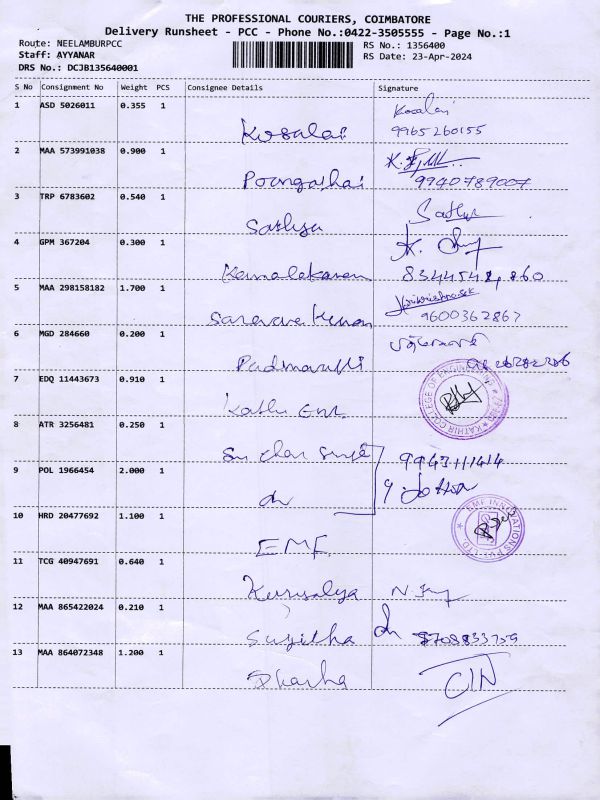 THE PROFESSIONAL COURIERS, COIMBATORE
Delivery Runsheet - PCC - Phone No.:0422-3505555 - Page No.:1
Route: NEELAMBURPCC
RS No.: 1356400
Staff: AYYANAR
RS Date: 23-Apr-2024
DRS No.: DCJB135640001
S No Consignment No Weight PCS Consignee Details Signature
1 ASD 5026011 0.355 1
Kosalai
Kosalai
9965260155
2 MAA 573991038 0.900 1
Poongothai
9940789007
3 TRP 6783602 0.540 1
Sathya
Sathya
4 GPM 367204 0.300 1
Kamalakannan
5 MAA 298158182 1.700 1
Saravana Kumar
9600362867
6 MGD 284660 0.200 1
7 EDQ 11443673 0.910 1
KATHIR COLLEGE OF ENGINEERING
8 ATR 3256481 0.250 1
9943111414
9 POL 1966454 2.000 1
10 HRD 20477692 1.100 1
EMF
EMF INNOVATIONS PVT LTD
11 TCG 40947691 0.640 1
12 MAA 865422024 0.210 1
Sujitha
13 MAA 864072348 1.200 1